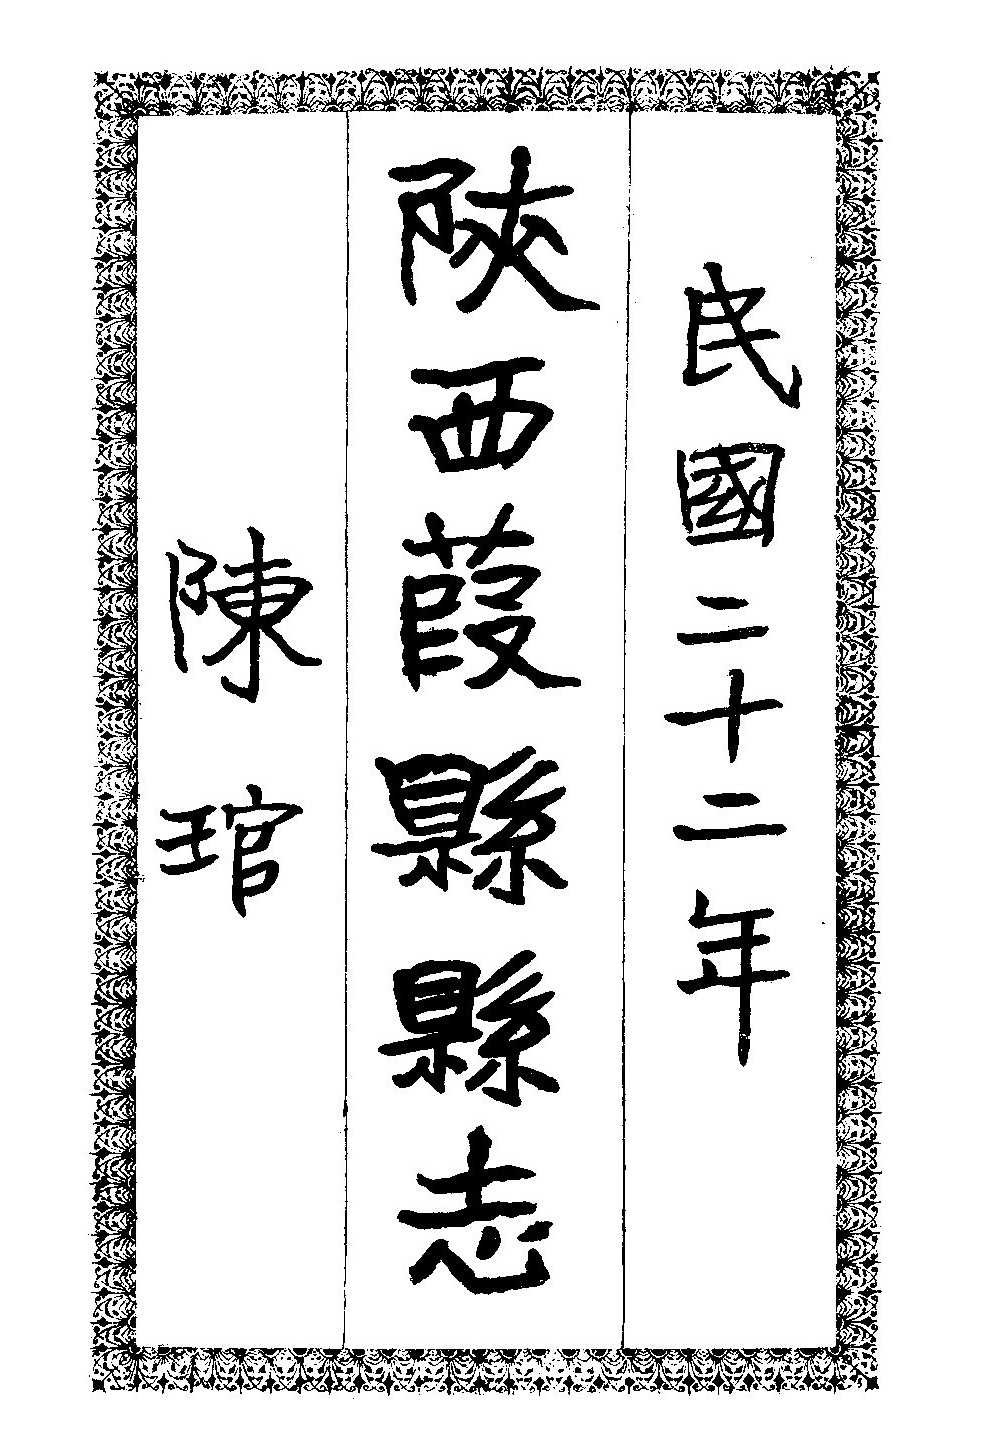 民國二十二年
陝西葭縣縣志
陳琯